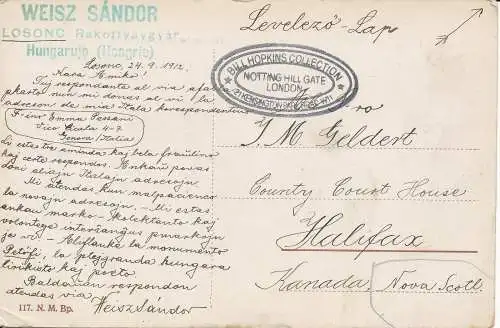 WEISZ SÁNDOR
LOSONC Rakottyaygyár
Hungarujo (Hongrie)
Levelező-Lap
BILL HOPKINS COLLECTION
NOTTING HILL GATE
LONDON
Losonc, 24.9.1912.
Kara Amiko!
Tuj respondante al via afa
pkarto nun mi donas al vi la
adreson de mia Itala korespondantin
F-ino Emma Pessani
Vico Scala 4-7
Genova (Italia)
Ŝi estas tre aminda kaj bela fraŭlino
kaj certe respondos. Ankaŭ povas
doni aliajn Italajn adresojn.
Mi atendas kun malpacienco
la novajn adresojn. - Mi estas
ankaŭ marko-kolektanto kaj
volontege interŝanĝus pmarkojn
je vi. - Aliflanke la monumento
Petőfi, la plejgranda hungara
lirikisto kaj poeto.
Baldaŭan respondon
atendas via
Weisz Sándor
S-ro
J. M. Geldert
County Court House
Halifax
Kanada, Nova Scoti
117. N. M. Bp.